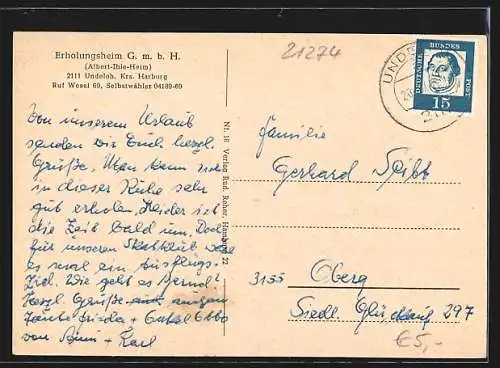 Erholungsheim G. m. b. H.
(Albert-Ihle-Heim)
2111 Undeloh, Krs. Harburg
Ruf Wesel 69, Selbstwähler 04189-69
21274
UND
DEUTSCHE BUNDES POST
15
Von unserem Urlaub
senden wir Euch herzl.
Grüße. Man kann sich
in dieser Ruhe sehr
gut erholen, Leider ist
die Zeit bald um. Doch
für unseren Skatklub wäre
es mal ein Ausflugs-
Ziel. Wie geht es Bernd?
Herzl. Grüße auch
Tante Frieda + Onkel
von Änne + Karl
Nr. 18 Verlag Rud. Reher, Hamburg 22
Familie
Gerhard Seibt
3155 Oberg
Siedl. Glückauf 297
€5,-